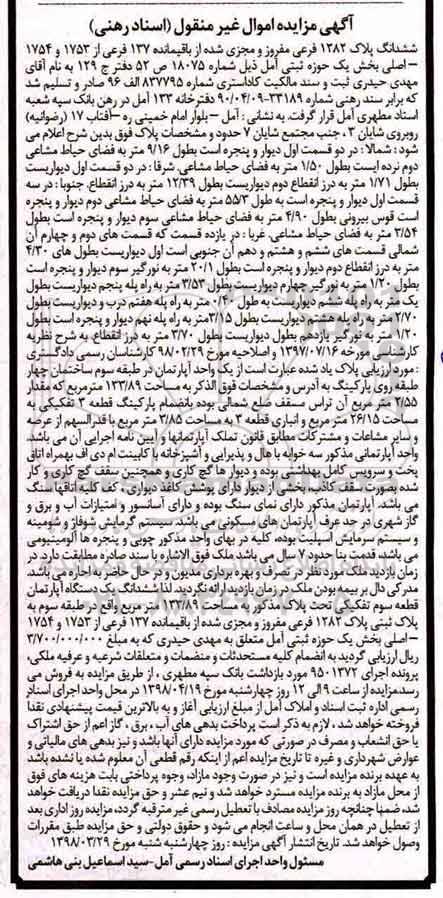 آگهی مزایده اموال غیر منقول (اسناد رهنی)
ششدانگ پلاک ۱۲۸۲ فرعی مفروز و مجزی شده از باقیمانده ۱۳۷ فرعی از ۱۷۵۳ و ۱۷۵۴
– اصلی بخش یک حوزه ثبتی آمل ذیل شماره ۱۸۰۷۵ ص ۵۲ دفتر ج ۱۲۹ به نام آقای
مهدی حیدری ثبت و سند مالکیت کاداستری شماره ۸۳۷۷۹۵ الف ۹۶ صادر و تسلیم شد
که برابر سند رهنی شماره ۳۳۱۸۹-۹۰/۰۴/۰۹ دفترخانه ۱۳۳ آمل در رهن بانک سپه شعبه
استاد مطهری آمل قرار گرفت. به نشانی : آمل – بلوار امام خمینی ره –آفتاب ۱۷ (رضوانیه)
روبروی شایان ۳ ، جنب مجتمع شایان ۷ حدود و مشخصات پلاک فوق بدین شرح اعلام می
شود : شمالا : در دو قسمت اول دیوار و پنجره است بطول ۹/۱۶ متر به فضای حیاط مشاعی
دوم نرده ایست بطول ۱/۵۰ متر به فضای حیاط مشاعی. شرقا : در دو قسمت اول دیواریست
بطول ۱/۷۱ متر به درز انقطاع دوم دیواریست بطول ۱۲/۳۹ متر به درز انقطاع. جنوبا : در سه
قسمت اول دیوار و پنجره است به طول ۵۵/۳ متر به فضای حیاط مشاعی دوم دیوار و پنجره
است قوس بیرونی بطول ۴/۹۰ متر به فضای حیاط مشاعی سوم دیوار و پنجره است بطول
۳/۵۴ متر به فضای حیاط مشاعی. غربا : در یازده قسمت که قسمت های دوم و چهارم آن
شمالی قسمت های ششم و هشتم و دهم آن جنوبی است اول دیواریست بطول های ۴/۳۰
متر به درز انقطاع دوم دیوار و پنجره است بطول ۲۰/۱ متر به نورگیر سوم دیوار و پنجره است
بطول ۱/۲۰ متر به نورگیر چهارم دیواریست بطول ۳/۵۳ متر به راه پله پنجم دیواریست بطول
یک متر به راه پله ششم دیواریست به طول ۰/۴۰ متر به راه پله هفتم درب و دیواریست بطول
۲/۷۰ متر به راه پله هشتم دیواریست بطول ۳/۱۵متر به راه پله نهم دیوار و پنجره است بطول
۱/۲۰ متر به نورگیر یازدهم بطول دیواریست بطول ۳/۷۰ متر به درز انقطاع. به شرح نظریه
کارشناسی مورخه ۱۳۹۷/۰۷/۱۶ و اصلاحیه مورخ ۹۸/۰۲/۲۹ کارشناسان رسمی دادگستری
: مورد ارزیابی پلاک یاد شده عبارت است از یک واحد آپارتمان در طبقه سوم ساختمان چهار
طبقه روی پارکینگ به آدرس و مشخصات فوق الذکر به مساحت ۱۳۳/۸۹ مترمربع که مقدار
۲/۵۵ متر مربع آن تراس مسقف ضلع شمالی بوده بانضمام پارکینگ قطعه ۳ تفکیکی به
مساحت ۲۶/۱۵ متر مربع و انباری قطعه ۳ به مساحت ۳/۸۵ متر مربع با قدرالسهم از عرصه
و سایر مشاعات و مشترکات مطابق قانون تملک آپارتمانها و آیین نامه اجرایی آن می باشد.
واحد آپارتمانی مذکور سه خوابه با هال و پذیرایی و آشپزخانه با کابینت ام دی اف بهمراه اتاق
پخت و سرویس کامل بهداشتی بوده و دیوار ها گچ کاری و همچنین سقف گچ کاری و کار
شده بصورت سقف کاذب، بخشی از دیوار دارای پوشش کاغذ دیواری ، کف کلیه اتاقها سنگ
می باشد. آپارتمان مذکور دارای نمای سنگ بوده و دارای آسانسور و امتیازات آب و برق و
گاز شهری در حد عرف آپارتمان های مسکونی می باشد. سیستم گرمایش شوفاژ و شومینه
و سیستم سرمایش اسپلیت بوده، کلیه در بهای واحد مذکور چوبی و پنجره ها آلومینیومی
می باشد، قدمت بنا حدود ۷ سال می باشد ملک فوق الاشاره با سند صادره مطابقت دارد. در
زمان بازدید ملک مورد نظر در تصرف و بهره برداری مدیون و در حال حاضر به اجاره می باشد.
مدرکی دال بر بیمه بودن ملک در زمان بازدید ارائه نگردید. لذا ششدانگ یک دستگاه آپارتمان
قطعه سوم تفکیکی تحت پلاک مذکور به مساحت ۱۳۳/۸۹ متر مربع واقع در طبقه سوم به
پلاک ثبتی پلاک ۱۲۸۲ فرعی مفروز و مجزی شده از باقیمانده ۱۳۷ فرعی از ۱۷۵۳ و ۱۷۵۴
– اصلی بخش یک حوزه ثبتی آمل متعلق به مهدی حیدری که به مبلغ ۳/۷۰۰/۰۰۰/۰۰۰
ریال ارزیابی گردید به انضمام کلیه مستحدثات و منضمات و متعلقات شرعیه و عرفیه ملکی،
پرونده اجرای ۹۵۰۱۳۷۲ مورد بازداشت بانک سپه مطهری ، از طریق مزایده به فروش می
رسد.مزایده از ساعت ۹ الی ۱۲ روز چهارشنبه مورخ ۱۳۹۸/۰۴/۱۹ در محل واحد اجرای اسناد
رسمی اداره ثبت اسناد و املاک آمل از مبلغ ارزیابی آغاز و به بالاترین قیمت پیشنهادی نقدا
فروخته خواهد شد ، لازم به ذکر است پرداخت بدهی های آب ، برق ، گاز اعم از حق اشتراک
یا حق انشعاب و مصرف در صورتی که مورد مزایده دارای آنها باشد و نیز بدهی های مالیاتی و
عوارض شهرداری و غیره تا تاریخ مزایده اعم از اینکه رقم قطعی آن معلوم شده یا نشده باشد
به عهده برنده مزایده است و نیز در صورت وجود مازاد، وجوه پرداختی بابت هزینه های فوق
از محل مازاد به برنده مزایده مسترد خواهد شد و نیم عشر و حق مزایده نقدا دریافت خواهد
شد، ضمنا چنانچه روز مزایده مصادف با تعطیل رسمی غیر مترقبه گردد، مزایده روز اداری بعد
از تعطیل در همان محل و ساعت انجام می شود و حقوق دولتی و حق مزایده طبق مقررات
وصول خواهد شد. تاریخ انتشار آگهی مزایده : روز چهارشنبه شنبه مورخ ۱۳۹۸/۰۳/۲۹
مسئول واحد اجرای اسناد رسمی آمل-سید اسماعیل بنی هاشمی